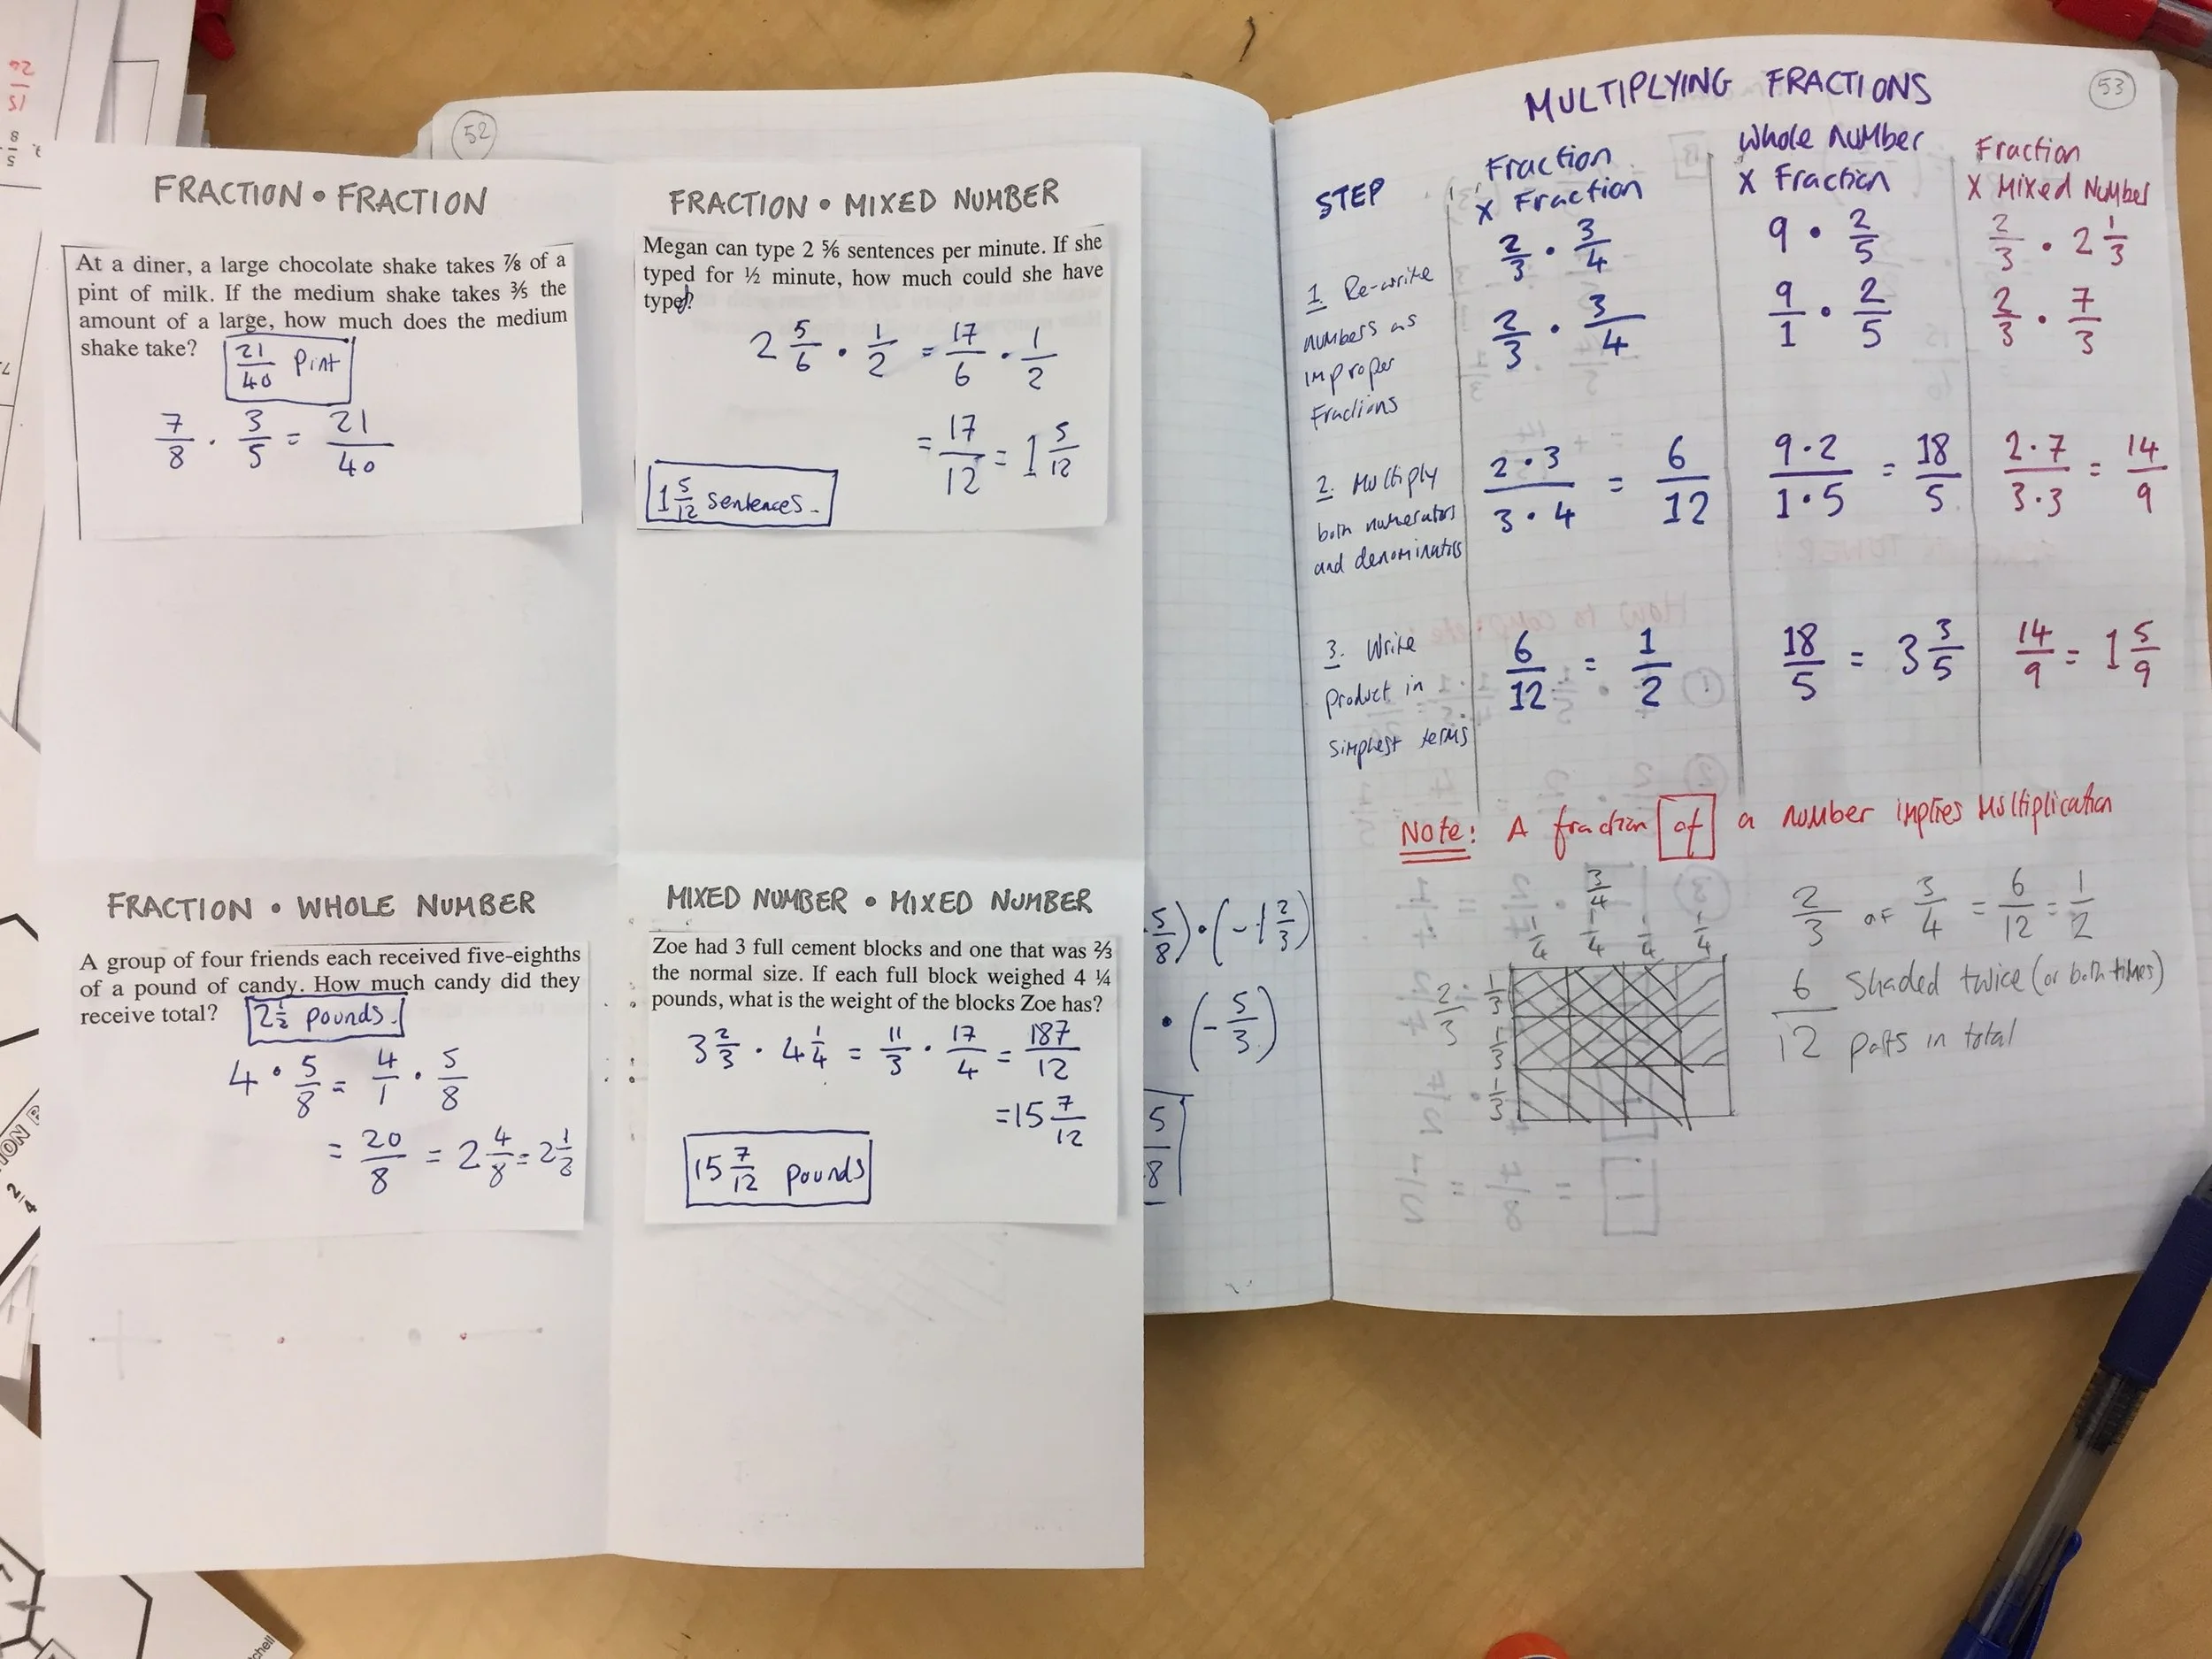 52
FRACTION • FRACTION
At a diner, a large chocolate shake takes ⅞ of a
pint of milk. If the medium shake takes ⅗ the
amount of a large, how much does the medium
shake take?
21/40 Pint
7/8 · 3/5 = 21/40
FRACTION • MIXED NUMBER
Megan can type 2 ⅚ sentences per minute. If she
typed for ½ minute, how much could she have
typed?
2 5/6 · 1/2 = 17/6 · 1/2
= 17/12 = 1 5/12
1 5/12 sentences.
FRACTION • WHOLE NUMBER
A group of four friends each received five-eighths
of a pound of candy. How much candy did they
receive total?
2 1/2 pounds.
4 · 5/8 = 4/1 · 5/8
= 20/8 = 2 4/8 = 2 1/2
MIXED NUMBER • MIXED NUMBER
Zoe had 3 full cement blocks and one that was ⅔
the normal size. If each full block weighed 4 ¼
pounds, what is the weight of the blocks Zoe has?
3 2/3 · 4 1/4 = 11/3 · 17/4 = 187/12
= 15 7/12
15 7/12 pounds
5/8) · (-1 2/3)
· (-5/3)
5
8
53
MULTIPLYING FRACTIONS
STEP
Fraction
X Fraction
Whole Number
X Fraction
Fraction
X Mixed Number
2/3 · 3/4
9 · 2/5
2/3 · 2 1/3
1. Re-write
numbers as
improper
Fractions
2/3 · 3/4
9/1 · 2/5
2/3 · 7/3
2. Multiply
both numerators
and denominators
2·3/3·4 = 6/12
9·2/1·5 = 18/5
2·7/3·3 = 14/9
3. Write
product in
simplest terms
6/12 = 1/2
18/5 = 3 3/5
14/9 = 1 5/9
Note: A fraction of a number implies Multiplication
3/4
1/4 1/4 1/4 1/4
2/3
1/3
1/3
1/3
2/3 OF 3/4 = 6/12 = 1/2
6 Shaded twice (or both times)
12 parts in total